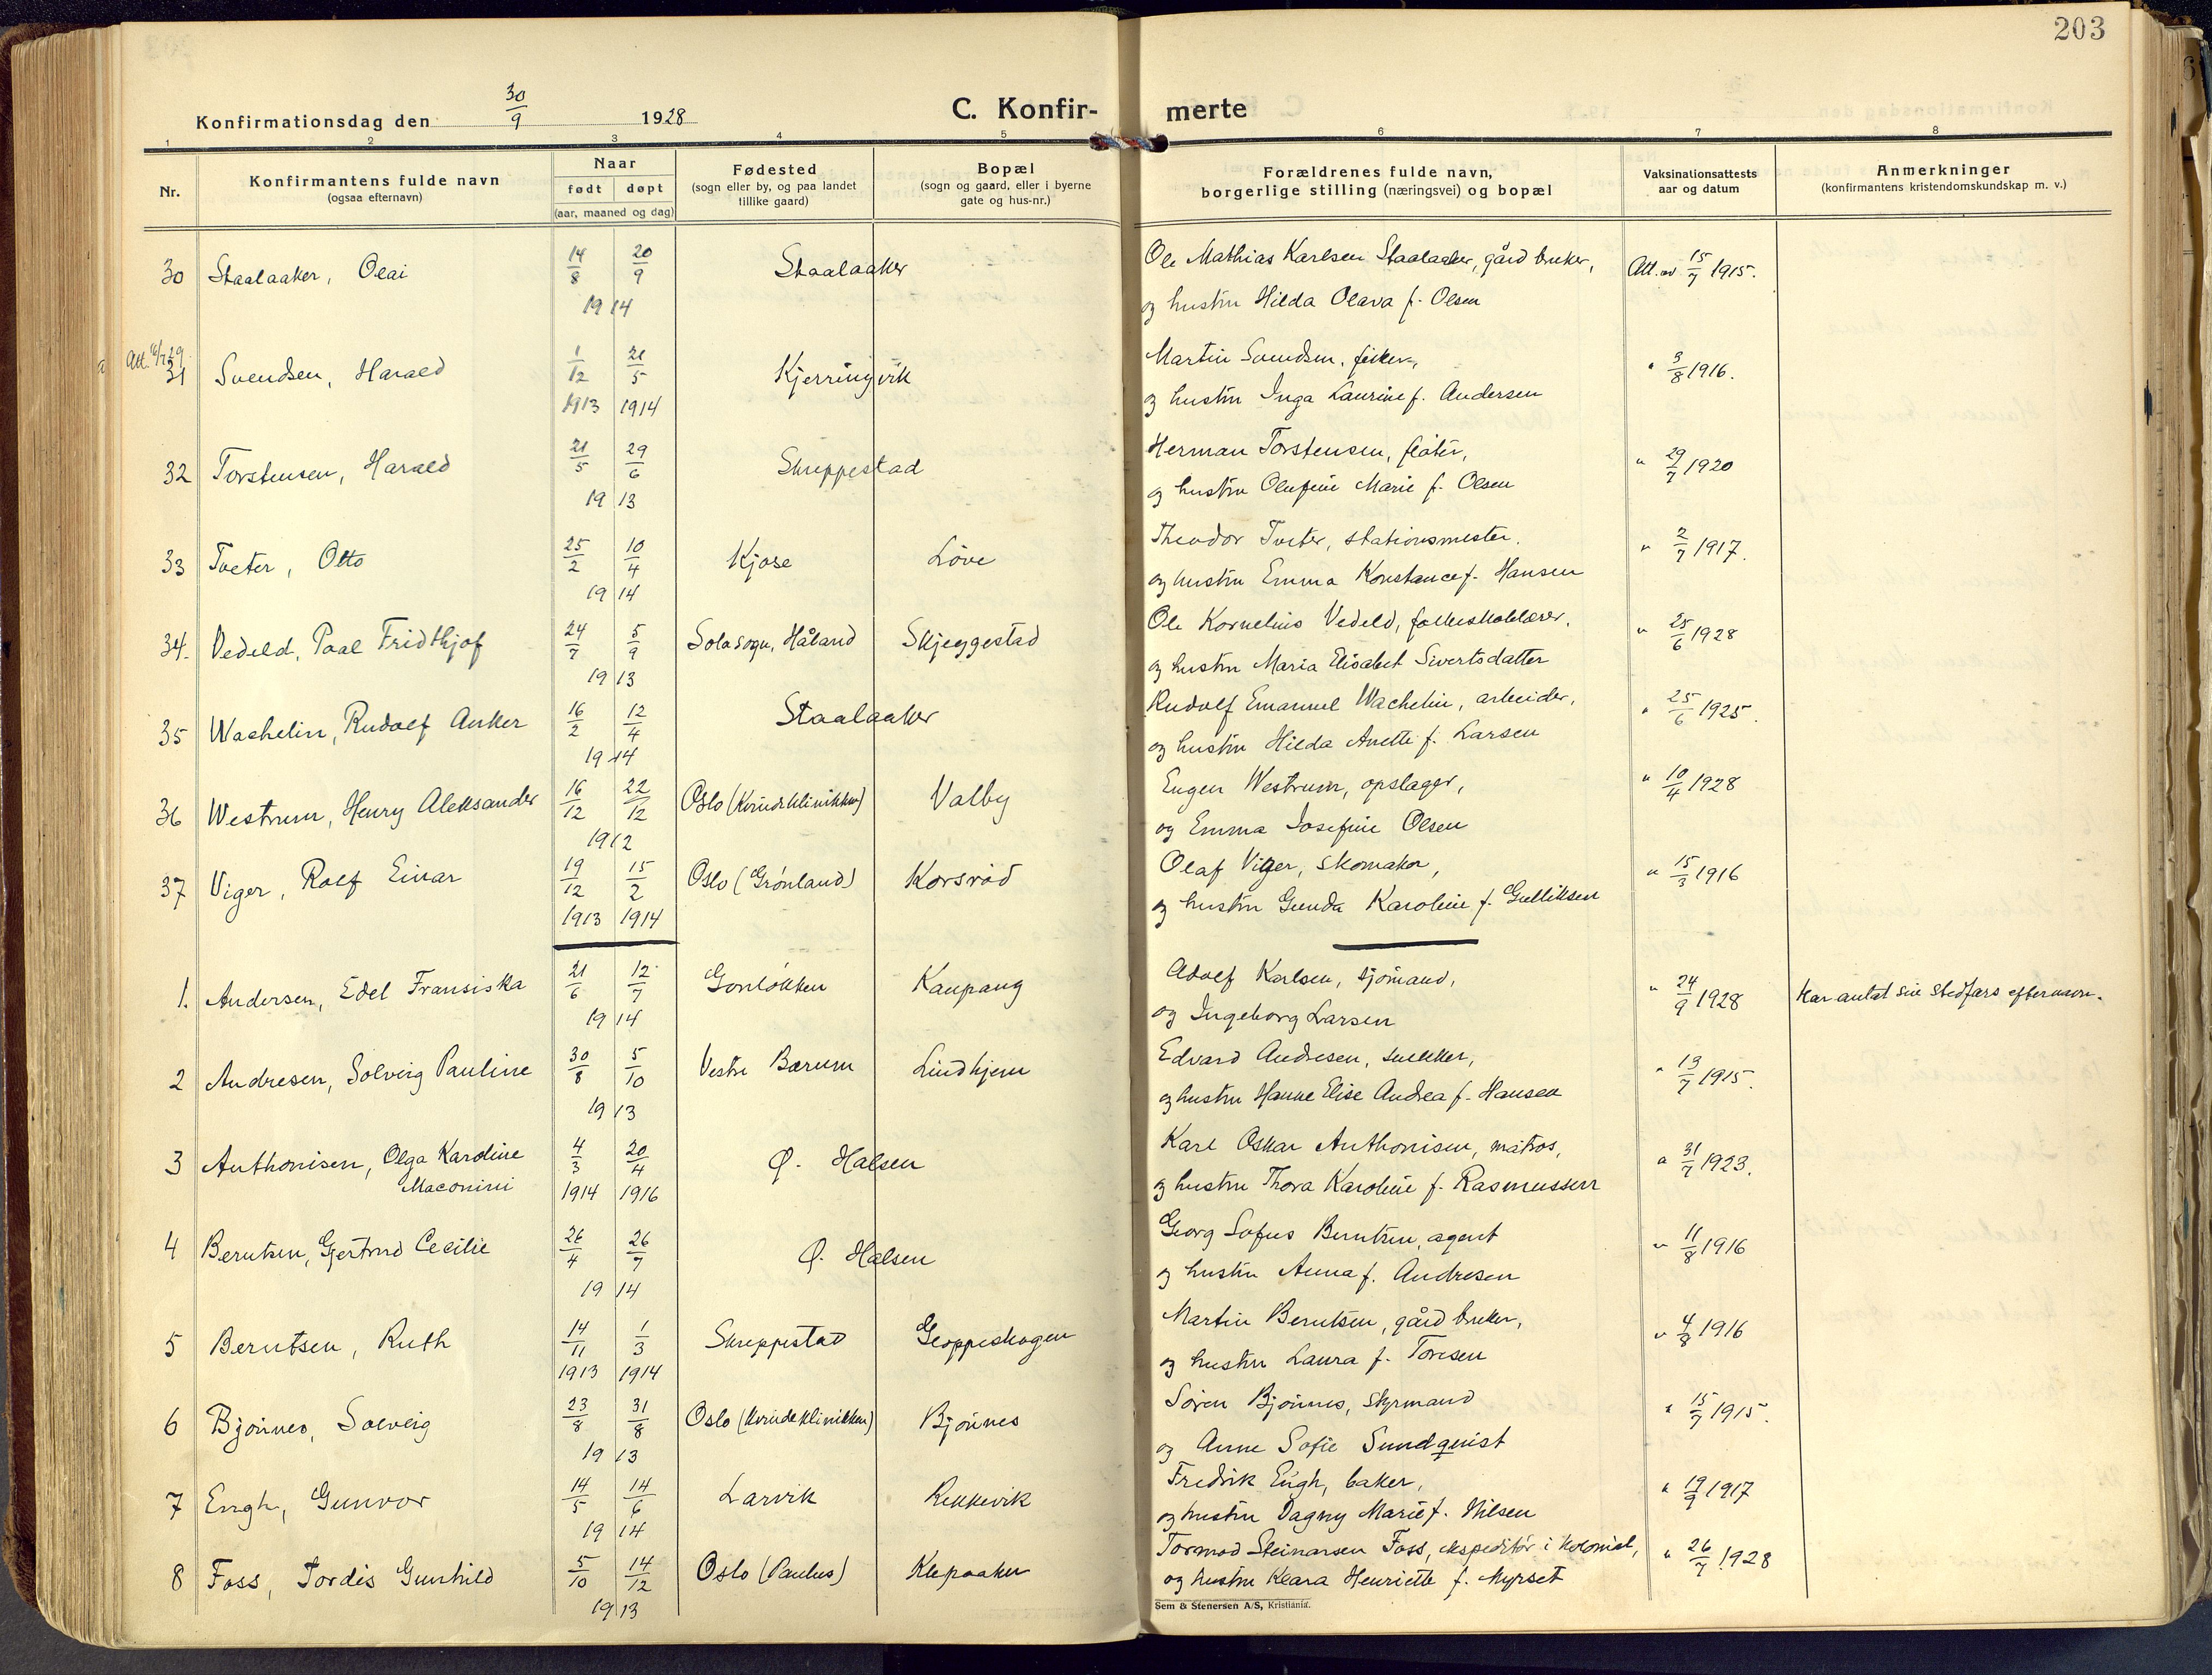 203
Konfirmationsdag den 30/9 1928
C. Konfir- merte
1 2 3 4 5 6 7 8
Nr.
Konfirmantens fulde navn
(ogsaa efternavn)
Naar
født døpt
(aar, maaned og dag)
Fødested
(sogn eller by, og paa landet
tillike gaard)
Bopæl
(sogn og gaard, eller i byerne
gate og hus-nr.)
Forældrenes fulde navn,
borgerlige stilling (næringsvei) og bopæl
Vaksinationsattests
aar og datum
Anmerkninger
(konfirmantens kristendomskundskap m. v.)
30 Staalaaker, Olai 14/8 20/9 Staalaaker Ole Mathias Karlsen Staalaaker, gård bruker, Att. av 15/7 1915.
1914 og hustru Hilda Olava f. Olsen
Att. 6/7 29
31 Svendsen, Harald 1/12 21/5 Kjerringvik Martin Svendsen, fisker, " 3/8 1916.
1913 1914 og hustru Inga Laurine f. Andersen
32 Torstensen, Harald 21/5 29/6 Skreppestad Herman Torstensen, fløter, " 29/7 1920
1913 og hustru Olufine Marie f. Olsen
33 Tveter, Otto 25/2 10/4 Kjose Løve Theodor Tveter, stationsmester. " 2/7 1917.
1914 og hustru Emma Konstance f. Hansen
34. Vedeld, Paal Fridthjof 24/7 5/9 Sola sogn, Håland Skjeggestad Ole Kornelius Vedeld, folkeskolelærer, " 25/6 1928
1913 og hustru Maria Elisabet Sivertsdatter
35 Wachelin, Rudolf Anker 16/2 12/4 Staalaaker Rudolf Emanuel Wachelin, arbeider, " 25/6 1925.
1914 og hustru Hilda Anette f. Larsen
36 Westrum, Henry Aleksander 16/12 22/12 Oslo (Kvindeklinikken) Valby Eugen Westrum, opslager, " 10/4 1928
1912 og Emma Josefine Olsen
37 Viger, Rolf Einar 19/12 15/2 Oslo (Grønland) Korsrød Olaf Viger, skomaker, " 15/3 1916
1913 1914 og hustru Gunda Karoline f. Gulliksen
1. Andersen, Edel Fransiska 21/6 12/7 Gonløkken Kaupang Adolf Karlsen, sjømand, " 24/9 1928 Har antat sin stedfars efternavn.
1914 og Ingeborg Larsen
2 Andresen, Solveig Pauline 30/8 5/10 Vestre Bærum Lindhjem Edvard Andresen, snekker, " 13/7 1915.
1913 og hustru Hanne Elise Andrea f. Hansen
3 Anthonisen, Olga Karoline 4/3 20/4 Ø. Halsen Karl Oskar Anthonisen, matros, " 31/7 1923.
Maconini 1914 1916 og hustru Thora Karoline f. Rasmussen
4 Berntsen, Gjertrud Cecilie 26/4 26/7 Ø. Halsen Georg Sofus Berntsen, agent " 11/8 1916
1914 og hustru Anna f. Andresen
5 Berntsen, Ruth 14/11 1/3 Skreppestad Gloppeskogen Martin Berntsen, gård bruker, " 4/8 1916
1913 1914 og hustru Laura f. Toresen
6 Bjønnes, Solveig 23/8 31/8 Oslo (Kvindeklinikken) Bjønnes Søren Bjønnes, styrmand " 15/7 1915.
1913 og Anne Sofie Sundqvist
7 Engh, Gunvor 14/5 14/6 Larvik Rekkevik Fredrik Engh, baker, " 19/9 1917
1914 og hustru Dagny Marie f. Nilsen
8 Foss, Tordis Gunhild 5/10 14/12 Oslo (Paulus) Klepaaker Tormod Steinarsen Foss, ekspeditør i kolonial, " 26/7 1928
1913 og hustru Klara Henriette f. Myrset
Sem & Stenersen A/S, Kristiania.